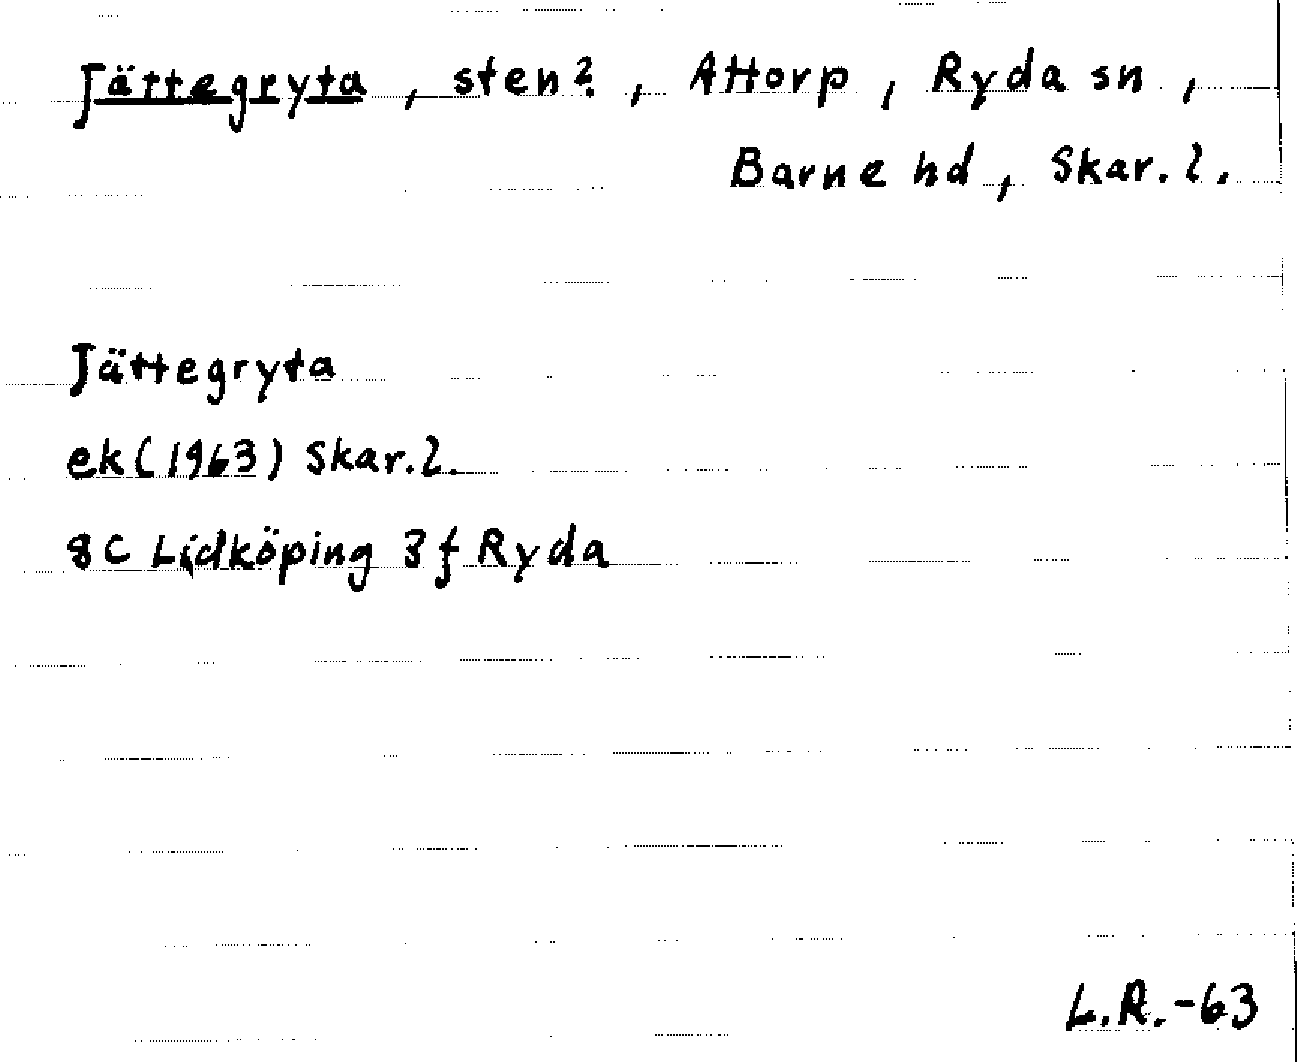 Jättegryta, sten?, Attorp, Ryda sn,
Barne hd, Skar. l.
Jättegryta
ek (1963) Skar. l.
8C Lidköping 3f Ryda
L.R.-63